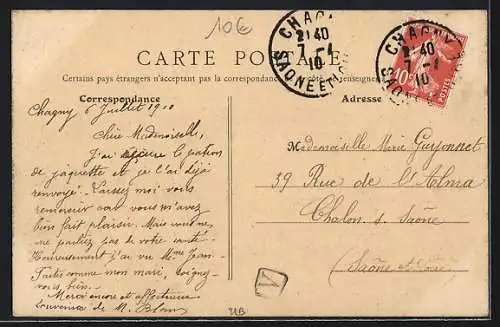 10€
CARTE POSTALE
Certains pays étrangers n'acceptant pas la correspondance côté renseignem
Correspondance
Adresse
CHAGNY
21 40
7 -
10
SAONE
CHAGNY
21 40
7 -
10
SAONE
10
POSTES
Chagny 6 Juillet 1910
Chère Mademoiselle,
J'ai le patron
de jaquette et je l'ai déjà
renvoyé. Laissez moi vous
remercier car vous m'avez
bien fait plaisir. Mais vous ne
ne partiez pas de votre santé.
Heureusement j'ai vu Mme Jean.
Faites comme mon mari, soignez-
vous bien.
Merci encore et affectueux
souvenirs de M. Blanc
Mademoiselle Marie Guyonnet
39 Rue de l'Alma
Chalon s. Saône
(Saône et Loire)
1